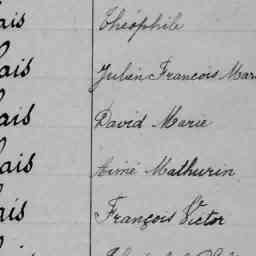 ais Théophile
ais Julien François Mar
ais David Marie
ais Aimé Mathurin
ais François Victor